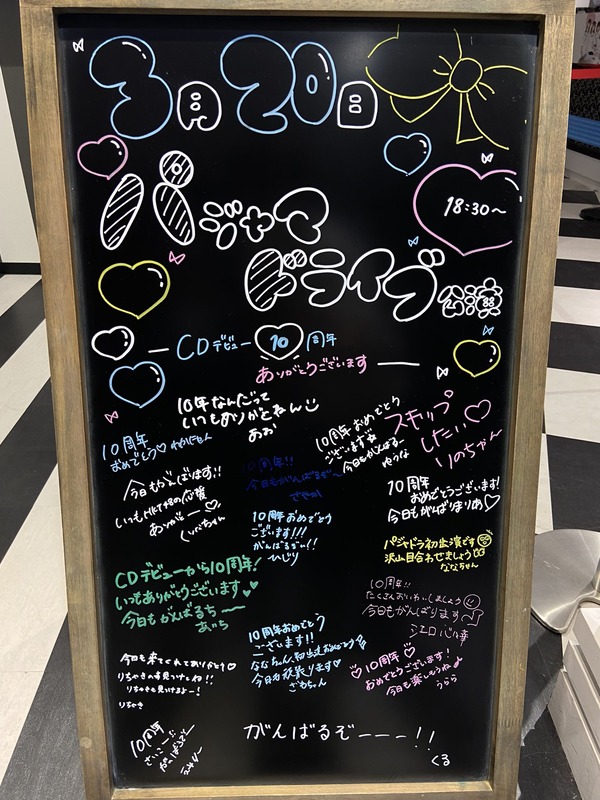 3月20日
パジャマ
18:30~
ドライブ公演
CDデビュー 10 周年
ありがとうございます
10年なんだって
いつもありがとねん
あお
10周年
おめでとう♡
10周年おめでとう
ございます☆
今日もがんばるー
ゆうな
スキップ
したい♡
りのちゃん
今日もがんばります!!
いつもHKT48の応援
ありがとー♡
10周年!!
今日もがんばるぞ~
さやか
10周年
おめでとうございます!
今日もがんばりまりあ♡
10周年おめでとう
ございます!!!
がんばるぞい!!
ひじり
パジャドラ初出演です
沢山目合わせましょう
ななちゃん
CDデビューから10周年!
いつもありがとうございます♥♥
今日もがんばるち~
あいち
10周年!!
たくさんおいわいしましょう
今日もがんばります
江口心幸
10周年おめでとう
ございます!!
ななちゃん初出演おめでとう
今日も頑張ります♡
ごめちゃん
♡10周年♡
おめでとうございます!
今日も楽しもうね
うらら
今日も来てくれてありがとう♡
りちゃきの事見つけてね!!
りちゃきも見つけるよー!
りちゃき
10周年
さいこーだ
がんばるぞー
がんばるぞーーー!!
くる